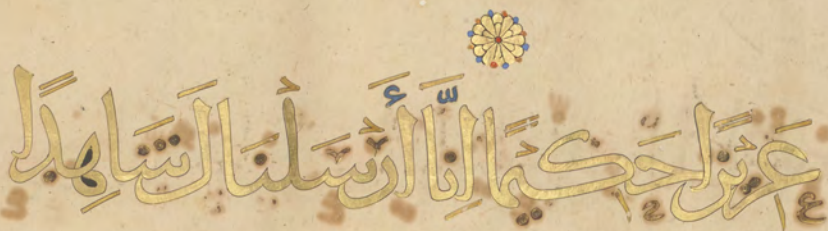 عَزِيزًا حَكِيمًا إِنَّا أَرْسَلْنَاكَ شَاهِدًا